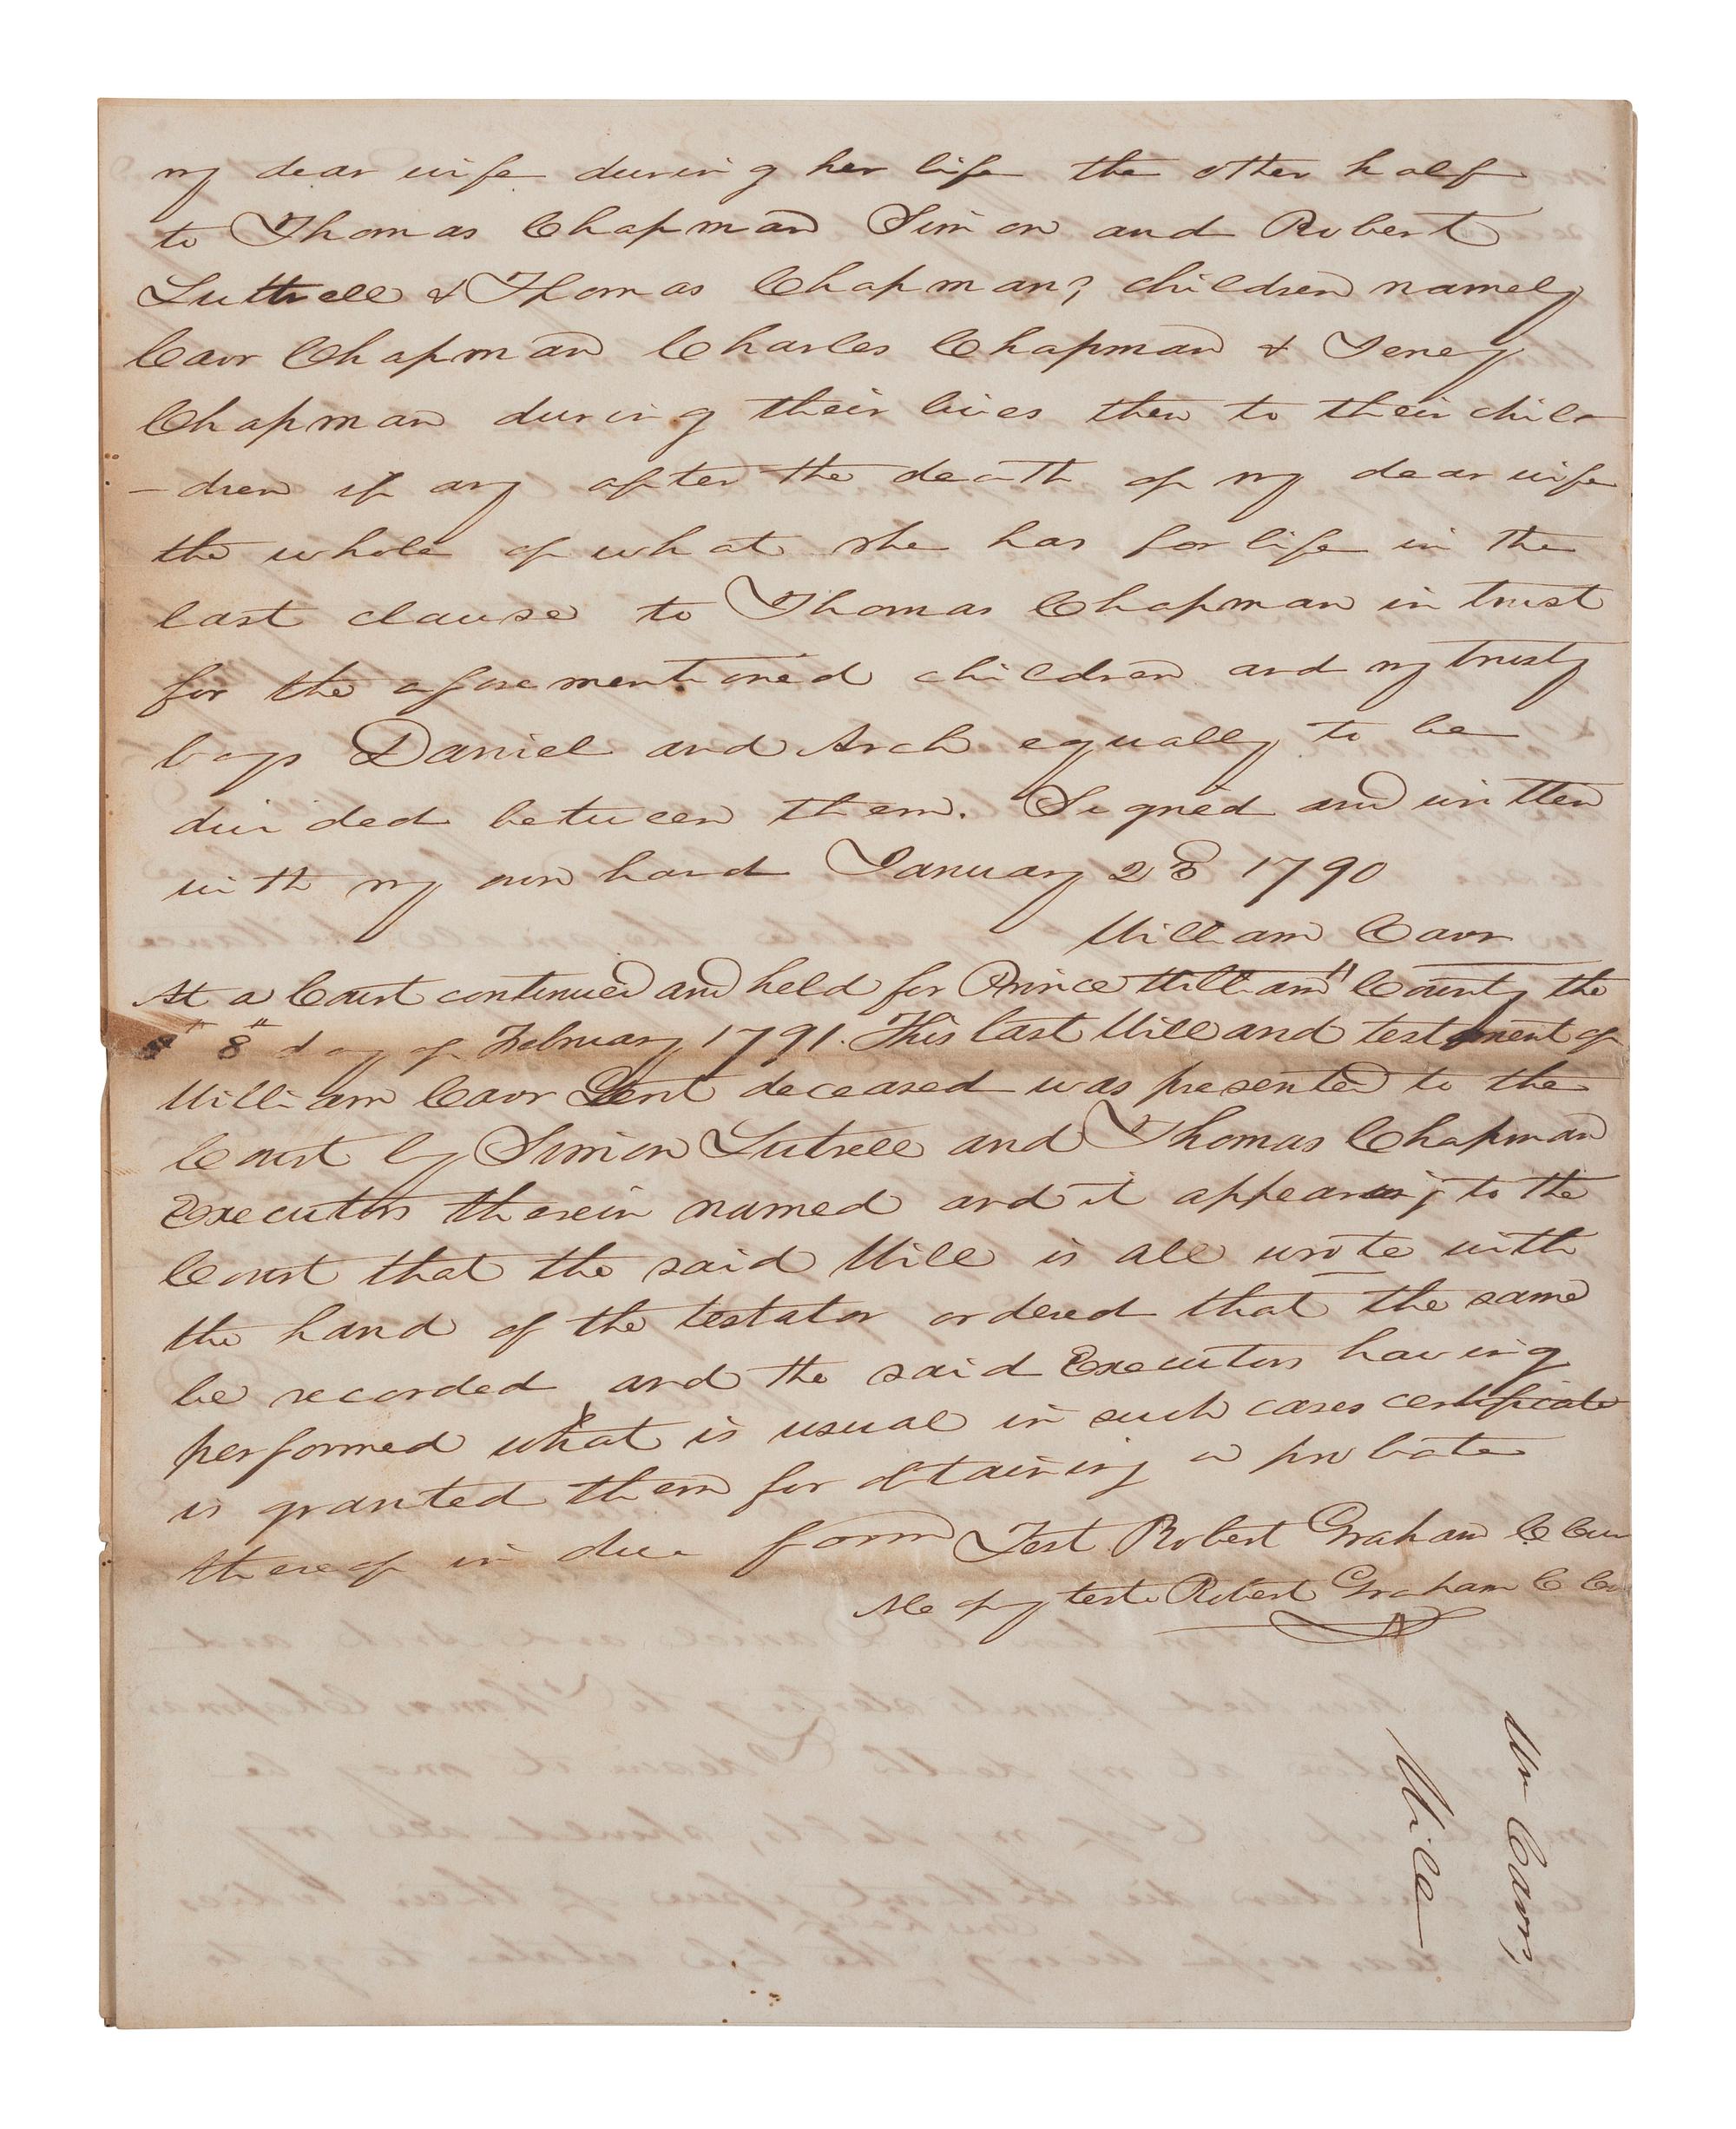 my dear wife during her life the other half
to Thomas Chapman Simon and Robert
Luttrell & Thomas Chapmans children namely
Carr Chapman Charles Chapman & Jeney
Chapman during their lives then to their chil
-dren if any after the death of my dear wife
the whole of what she has for life in the
last clause to Thomas Chapman in trust
for the aforementioned children and my trusty
boys Daniel and Arch equally to be
divided between them. Signed and written
with my own hand January 1790
William Carr
At a Court continued and held for Prince William County the
8th day of February 1791. This last Will and testament of
William Carr Gent deceased was presented to the
Court by Simon Lutrell and Thomas Chapman
Executors therein named and it appearing to the
Court that the said Will is all wrote with
the hand of the testator ordered that the same
be recorded and the said Executors having
performed what is usual in such cases certificate
is granted them for obtaining a probate
thereof in due form Test Robert Graham C Cur
A Copy teste Robert Graham C Cur
Wm Carrs
Will